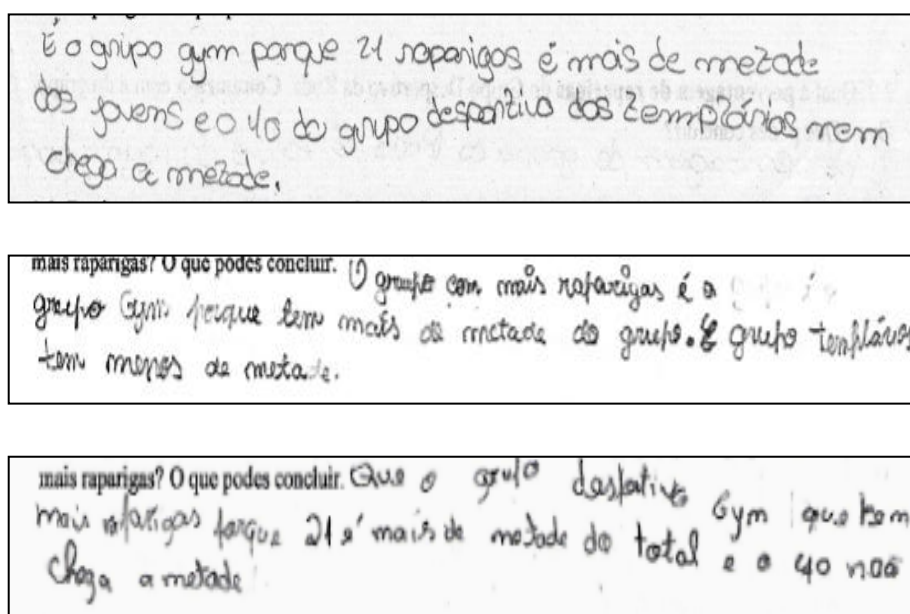 É o grupo gym porque 21 raparigas é mais de metade
dos jovens e o 40 do grupo desportivo dos templários nem
chega a metade.
mais raparigas? O que podes concluir. O grupo com mais raparigas é o
grupo Gym porque tem mais de metade do grupo. E grupo templários
tem menos de metade.
mais raparigas? O que podes concluir. Que o grupo desportivo Gym que tem
mais raparigas porque 21 é mais de metade do total e o 40 não
chega a metade